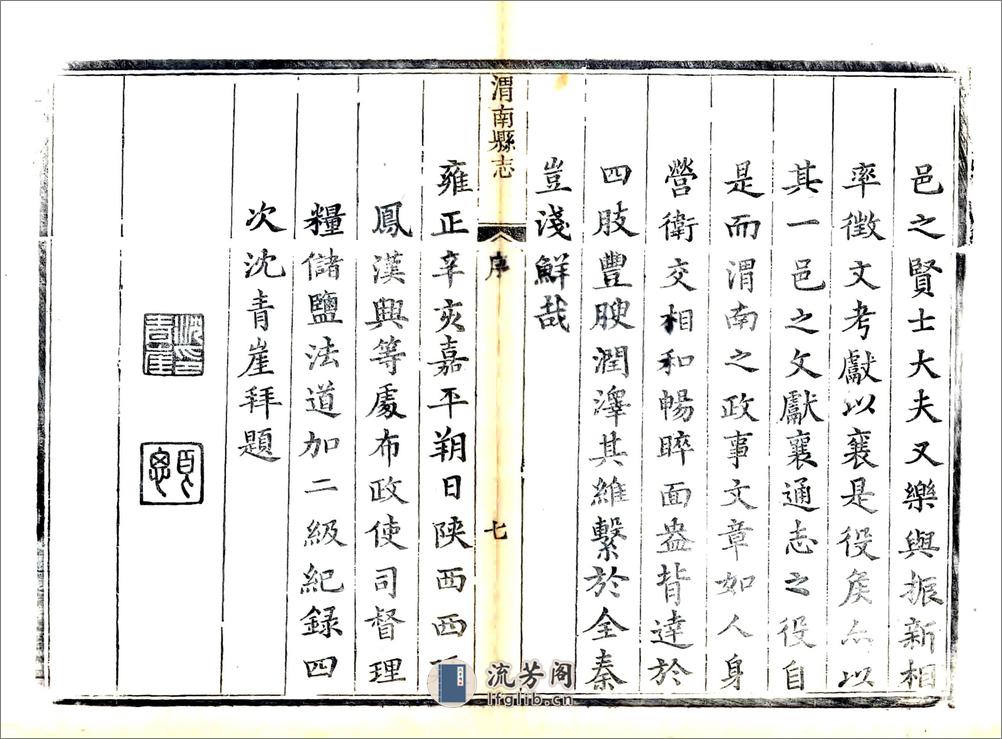 邑之賢士大夫又樂與振新相
率徵文考獻以襄是役矦亦以
其一邑之文獻襄通志之役自
是而渭南之政事文章如人身
營衛交相和暢睟面盎背達於
四肢豐腴潤澤其維繫於全秦
豈淺鮮哉
渭南縣志
序
七
雍正辛亥嘉平朔日陝西西
鳳漢興等處布政使司督理
糧儲鹽法道加二級紀録四
次沈青崖拜題
流芳阁
lfglib.cn